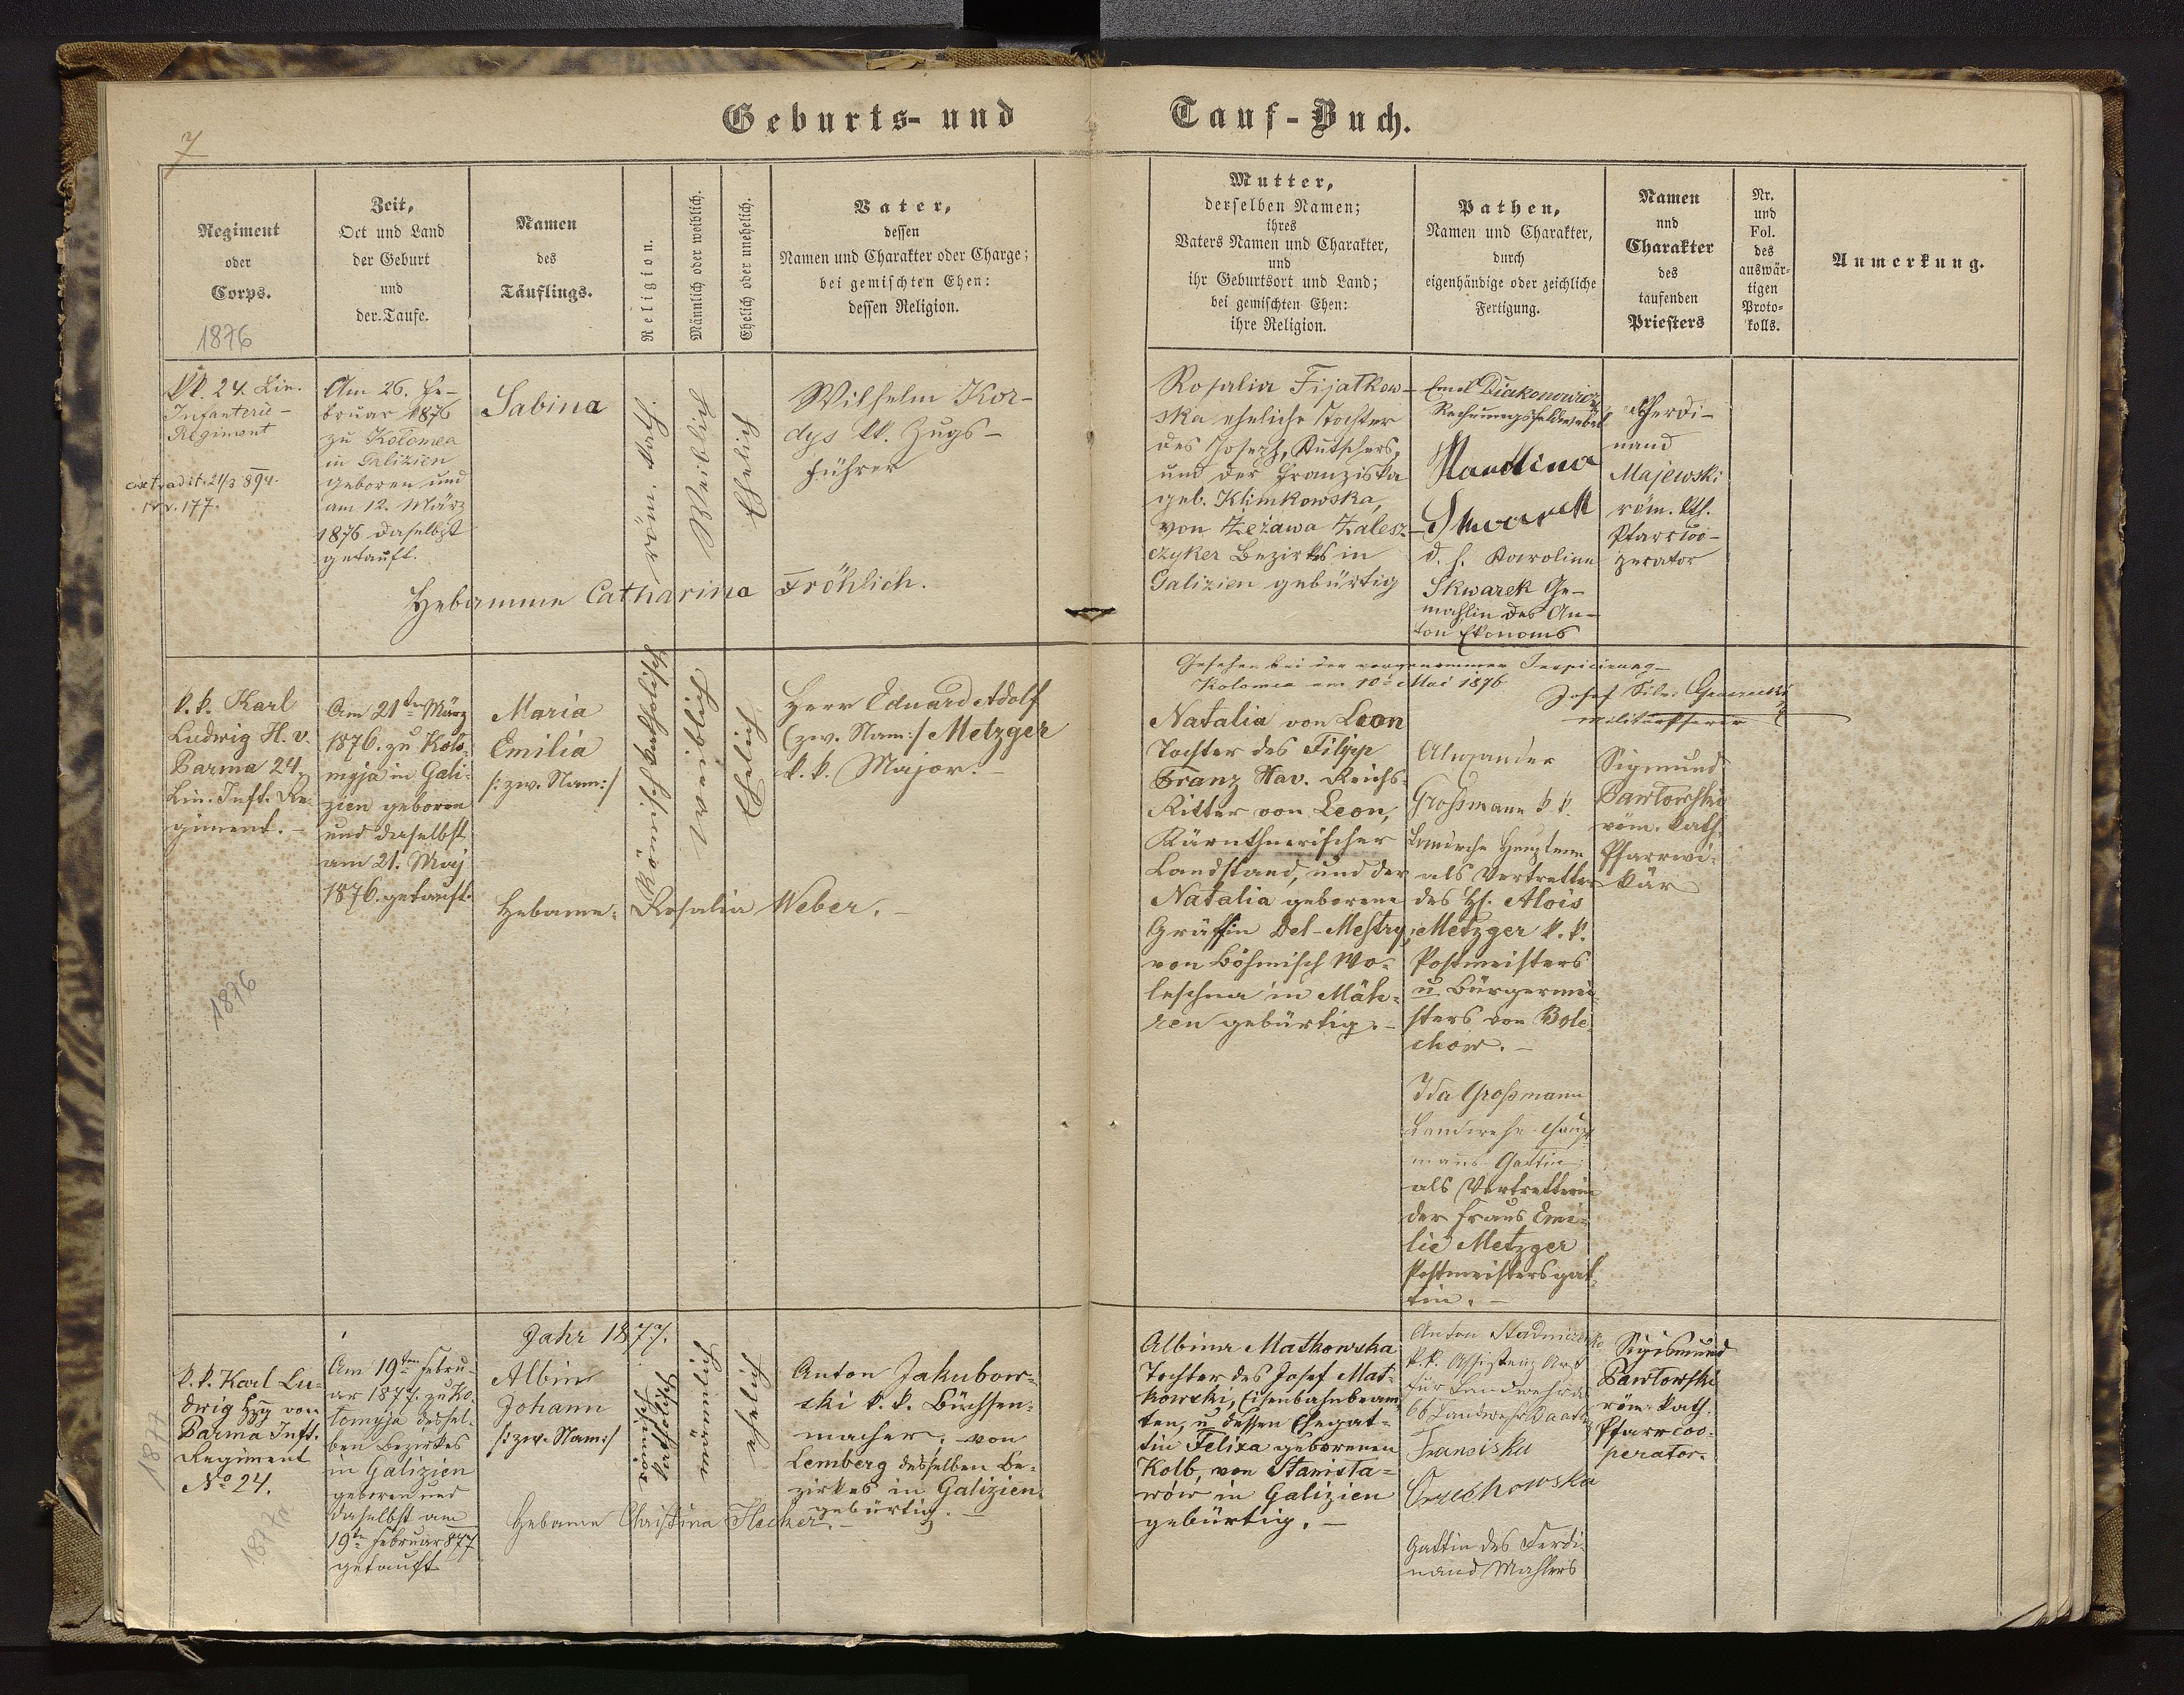 7
Geburts- und Tauf-Buch.
Regiment
oder
Corps.
1876
Zeit,
Ort und Land
der Geburt
und
der Taufe.
Namen
des
Täuflings.
Religion.
Männlich oder weiblich.
Ehelich oder unehelich.
Vater,
dessen
Namen und Charakter oder Charge;
bei gemischten Ehen:
dessen Religion.
Mutter,
derselben Namen;
ihres
Vaters Namen und Charakter,
und
ihr Geburtsort und Land;
bei gemischten Ehen:
ihre Religion.
Pathen,
Namen und Charakter,
durch
eigenhändige oder zeichliche
Fertigung.
Namen
und
Charakter
des
taufenden
Priesters
Nr.
und
Fol.
des
auswär-
tigen
Proto-
kolls.
Anmerkung.
kk. 24. Lin.
Infanterie-
Regiment
extradit. 21/3 894.
Nr. 177.
Am 26. Fe-
bruar 1876
zu Kolomea
in Galizien
geboren und
am 12. März
1876 daselbst
getauft.
Sabina
röm. kath.
Weiblich
Ehelich
Wilhelm Kor-
dys kk. Zugs-
führer
Hebamme Catharina Fröhlich.
Rosalia Fijatkow-
ska eheliche Tochter
des Joseph, Kutschers,
und der Franziska
geb. Klimkowska,
von Żeżawa Zalesz-
czyker Bezirks in
Galizien gebürtig
Emil Diakonowicz
Rechnungsfeldwebel
Skwarek
d. h. Karoline
Skwarek Ge-
mahlin des An-
ton Ekonoms
Ferdi-
nand
Majewski
röm. kth.
Pfarrcoo-
perator
Gesehen bei der vorgenommen Inspicirung
Kolomea am 10. Mai 1876
Josef
Militärpfarrer
k.k. Karl
Ludwig H. v.
Parma 24.
Lin. Inft. Re-
giment.-
1876
Am 21ten März
1876. zu Kolo-
myja in Gali-
zien geboren
und daselbst
am 21. Maj
1876. getauft.
Maria
Emilia
/:zw. Nam:/
Römisch katholisch
weiblich
Ehelich
Herr Eduard Adolf
(zw. Nam:/ Metzger
k. k. Major.-
Hebame: Rosalia Weber.-
Natalia von Leon
Tochter des Filipp
Franz Xav. Reichs-
Ritter von Leon,
Kärnthnerischer
Landstand, und der
Natalia geborene
Gräffin Del-Mestry,
von Böhmisch Wo-
leschna in Mäh-
ren gebürtig.-
Alexander
Großmann k k.
Landwehr Hauptmann
als Vertretter
des H. Alois
Metzger k. k.
Postmeisters
u. Bürgermei-
sters von Bole-
chow.-
Ida Großmann
Landwehr-Haupt-
manns-Gattin
als Vertretterin
der Fraus Emi-
lie Metzger
Postmeistersgat-
tin.-
Sigmund
Pawłowski
röm. kath.
Pfarrvi-
kär
Jahr 1877.
1877
k.k. Karl Lu-
dwig Hzg von
Parma Inft.
Regiment
No 24.
1877a
Am 19ten Febru-
ar 1877. zu Ko-
lomyja dessel-
ben Bezirkes
in Galizien
geboren und
daselbst am
19ten Februar 877
getauft
Albin
Johann
/:zw. Nam:/
römisch
katholisch
männlich
ehelich
Anton Jakubow-
ski k. k. Büchsen-
macher, von
Lemberg desselben Be-
zirkes in Galizien
gebürtig.-
Hebame Christina Hecker.-
Albina Matkowska
Tochter des Josef Mat-
kowski, Eisenbahnbeam-
ten, u. dessen Ehegat-
tin Felixa geborenen
Kolb, von Stanisła-
wów in Galizien
gebürtig.-
Anton
k.k. Assistenz Arzt
Franciska
Orzechowska
Gattin des Ferdi-
nand Mahlers
Sigismund
Pawłowski
röm. kath.
Pfarrcoo-
perator.